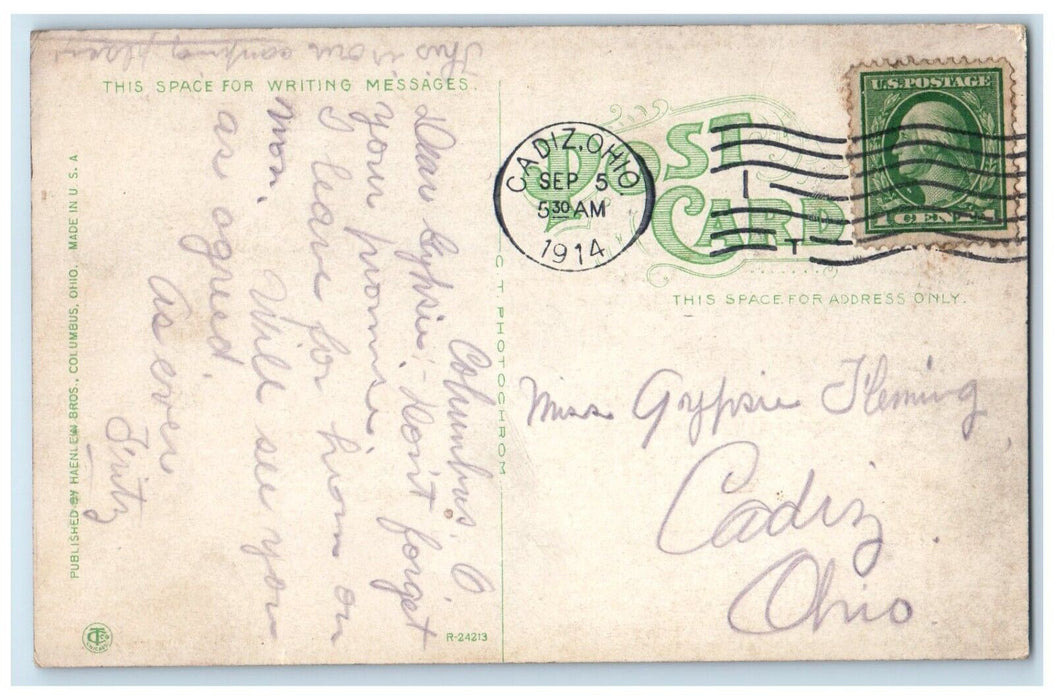 This is our camping place
THIS SPACE FOR WRITING MESSAGES.
Columbus. O.
Dear Gypsie:- Don't forget
your promise.
I leave for home on
Mon. Will see you
as agreed.
As ever
Fritz
PUBLISHED BY HAENLEIN BROS., COLUMBUS, OHIO. MADE IN U.S.A
R-24213
C T PHOTOCHROM
POST
CARD
CADIZ, OHIO.
SEP 5
5 30 AM
1914
U.S. POSTAGE
1 CENT 1
THIS SPACE FOR ADDRESS ONLY.
Miss Gypsie Fleming
Cadiz
Ohio